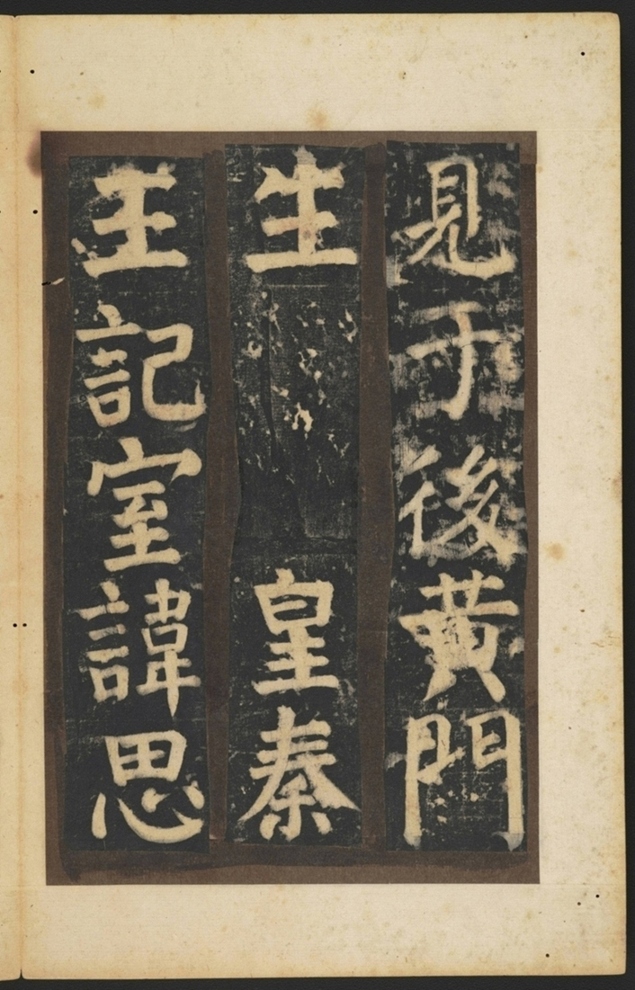 見于後黃門
生皇秦
王記室諱思